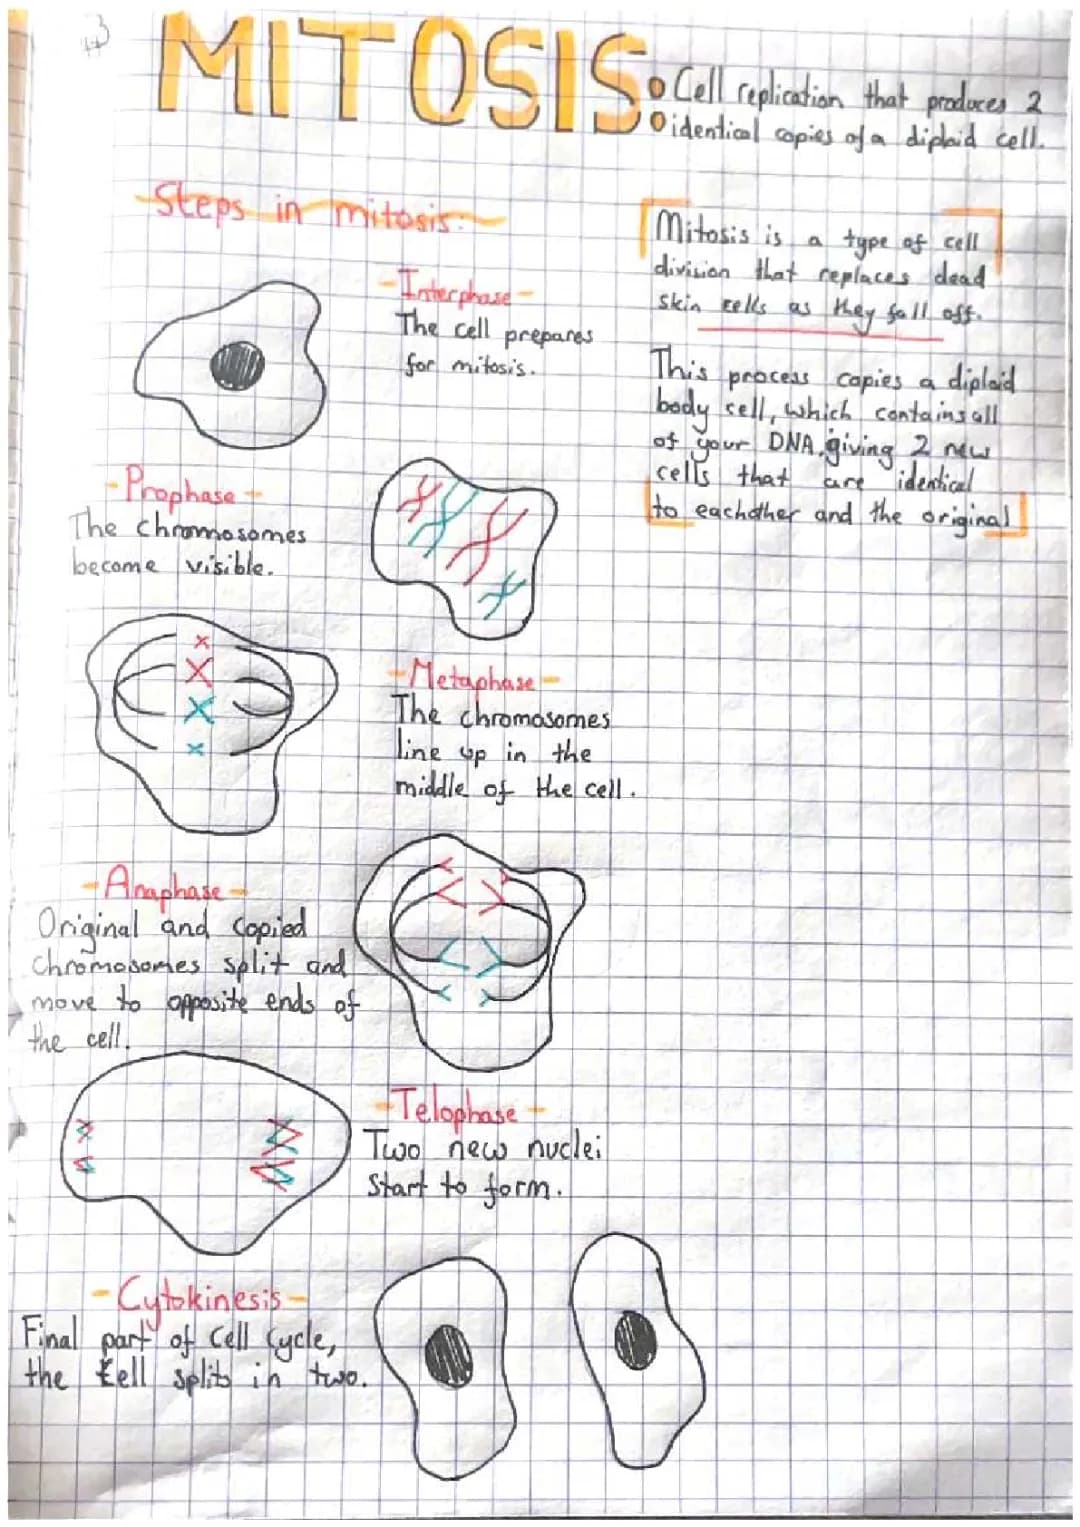 #3
MITOSIS:
Cell replication that produces 2
identical copies of a diploid cell.
Steps in mitosis:
Mitosis is a type of cell
division that replaces dead
skin cells as they fall off.
This process copies a diploid
body cell, which contains all
of your DNA, giving 2 new
cells that are identical
to eachother and the original
- Interphase -
The cell prepares
for mitosis.
- Prophase -
The chromosomes
become visible.
- Metaphase -
The chromosomes
line up in the
middle of the cell.
- Anaphase -
Original and copied
chromosomes split and
move to opposite ends of
the cell.
- Telophase -
Two new nuclei
start to form.
- Cytokinesis -
Final part of cell cycle,
the cell splits in two.